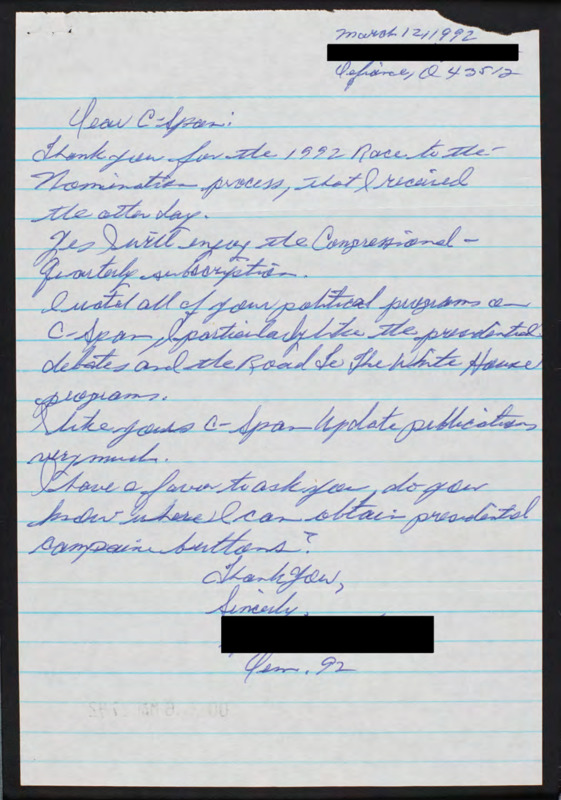 March 12, 1992
Defiance, O 43512
Dear C-Span:
Thank you for the 1992 Race to the-
Nomination process, that I received
the other day.
Yes I will enjoy the Congressional-
Quarterly subscription.
I watch all of your political programs on
C-Span, I particularly like the presidential
debates and the Road To The White House
programs.
I like yours C-Span Update publication
very much.
I have a favor to ask you, do you
know where I can obtain presidental
campain buttons?
Thank You,
Sincerly,
Dem. 92